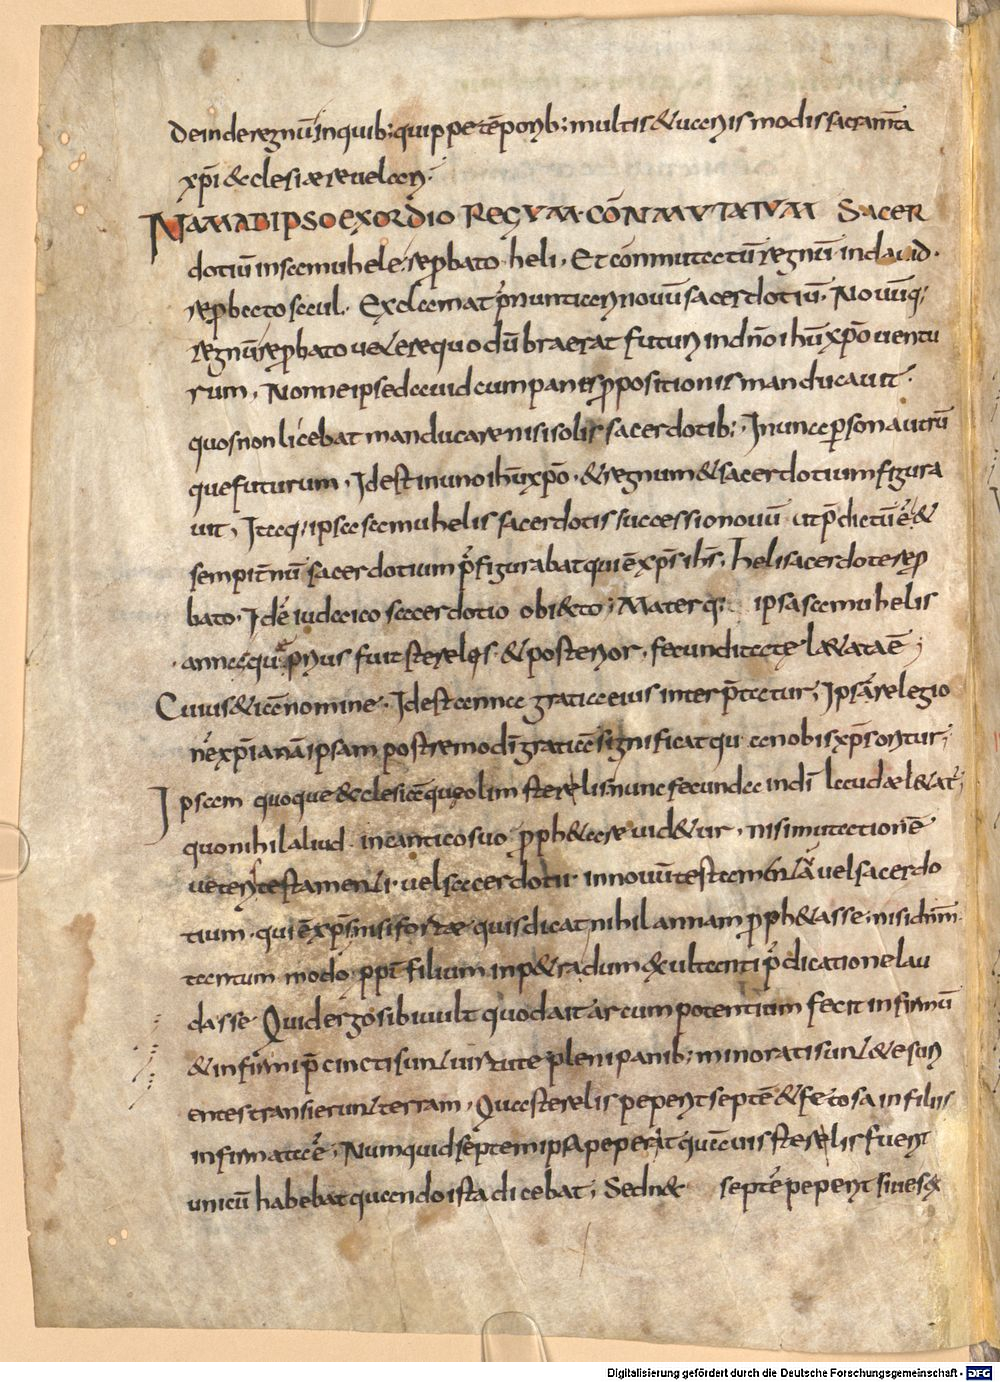 deinde regnū inquib; quippe tēporib; multis & uariis modis sacram̄ta
xp̄i & eclesiae reuelari.
NAM AB IPSO EXORDIO REGVM CŌNMVTATVM SACER
dotiū insamuhele reprbato heli. Et cōnmutatū regnū indauid.
reprbato saul. Exclamat p̄nuntiari nouū sacerdotiū. Nouūq;
regnū reprbato uetere quodūbraerat futuri indn̄o ihū xp̄o uentu
rum. Nonne ipse dauid cum panes ppositionis manducauit.
quos non licebat manducare nisi solis sacerdotib; In una persona utrū
que futurum. Idest inuno ihū xp̄o. & regnum & sacerdotium figura
uit, Itaq; ipsa samuhelis sacerdotis successio nouū ut p̄dictū ē &
sempitnū sacerdotium p̄figurabat qui ē xp̄s ihs̄. heli sacerdote repro
bato. Id ē iudaico sacerdotio obiecto; Materq; ipsa samuhelis
anna quae prius fuit sterelis & posterior. fecunditate laetata ē;
Cuius & iā nomine. Idest anna gratia eius interp̄tatur; Ipsā relegio
nē xp̄ianā ipsam postremo dī gratiā significat qua anobis xp̄s oritur;
Ipsam quoque & eclesiā quae olim sterelis nunc fecunda indī laudae laetat̄;
quo nihil aliud incantico suo pph&are uid&ur. nisi mutationē
ueteris testamenti. uel sacerdotii innouū testamentū uel sacerdo
tium. qui ē xp̄s nisi fortae quis dicat nihil annam pph&asse. nisi dn̄m
tantum modo ppt̄ filium inp&radum exultanti p̄dicatione lau
dasse Quid ergo sibi uult quod ait arcum potentium fecit infirmū
& infirmi p̄cincti sunt uirtute pleni panib; minorati sunt & esuri
entes transierunt terram. Qua sterelis peperit septē & fetosa in filiis
infirmata ē. Numquid septem ipsa peperat quāuis sterelis fuerit
unicū habebat quando ista dicebat; Sed n& septē peperit siue sex
Digitalisierung gefördert durch die Deutsche Forschungsgemeinschaft - DFG